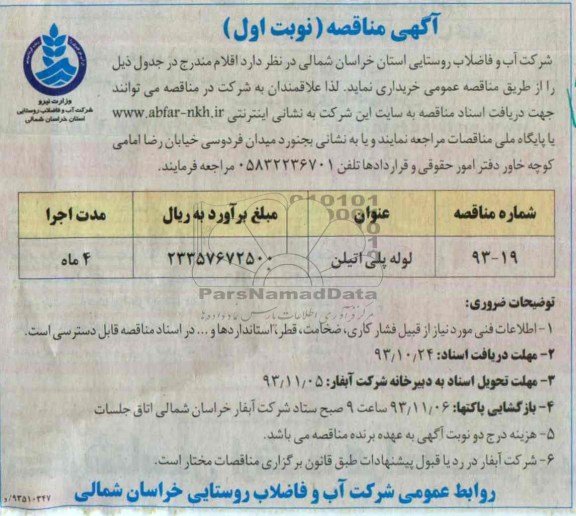 آگهی مناقصه (نوبت اول)
وزارت نیرو
شرکت آب و فاضلاب روستایی
استان خراسان شمالی
شرکت آب و فاضلاب روستایی استان خراسان شمالی در نظر دارد اقلام مندرج در جدول ذیل
را از طریق مناقصه عمومی خریداری نماید. لذا علاقمندان به شرکت در مناقصه می توانند
جهت دریافت اسناد مناقصه به سایت این شرکت به نشانی اینترنتی www.abfar-nkh.ir
یا پایگاه ملی مناقصات مراجعه نمایند و یا به نشانی بجنورد میدان فردوسی خیابان رضا امامی
کوچه خاور دفتر امور حقوقی و قراردادها تلفن ۰۵۸۳۲۲۳۶۷۰۱ مراجعه فرمایند.
شماره مناقصه عنوان مبلغ برآورد به ریال مدت اجرا
۹۳-۱۹ لوله پلی اتیلن ۲۳۳۵۷۶۷۲۵۰۰ ۴ ماه
ParsNamadData
توضیحات ضروری:
۱- اطلاعات فنی مورد نیاز از قبیل فشار کاری، ضخامت، قطر، استانداردها و ... در اسناد مناقصه قابل دسترسی است.
۲- مهلت دریافت اسناد: ۹۳٫۱۰٫۲۴
۳- مهلت تحویل اسناد به دبیرخانه شرکت آبفار: ۹۳٫۱۱٫۰۵
۴- بازگشایی پاکتها: ۹۳٫۱۱٫۰۶ ساعت ۹ صبح ستاد شرکت آبفار خراسان شمالی اتاق جلسات
۵- هزینه درج دو نوبت آگهی به عهده برنده مناقصه می باشد.
۶- شرکت آبفار در رد یا قبول پیشنهادات طبق قانون برگزاری مناقصات مختار است.
روابط عمومی شرکت آب و فاضلاب روستایی خراسان شمالی
۹۳۵۱۰۳۴۷/د